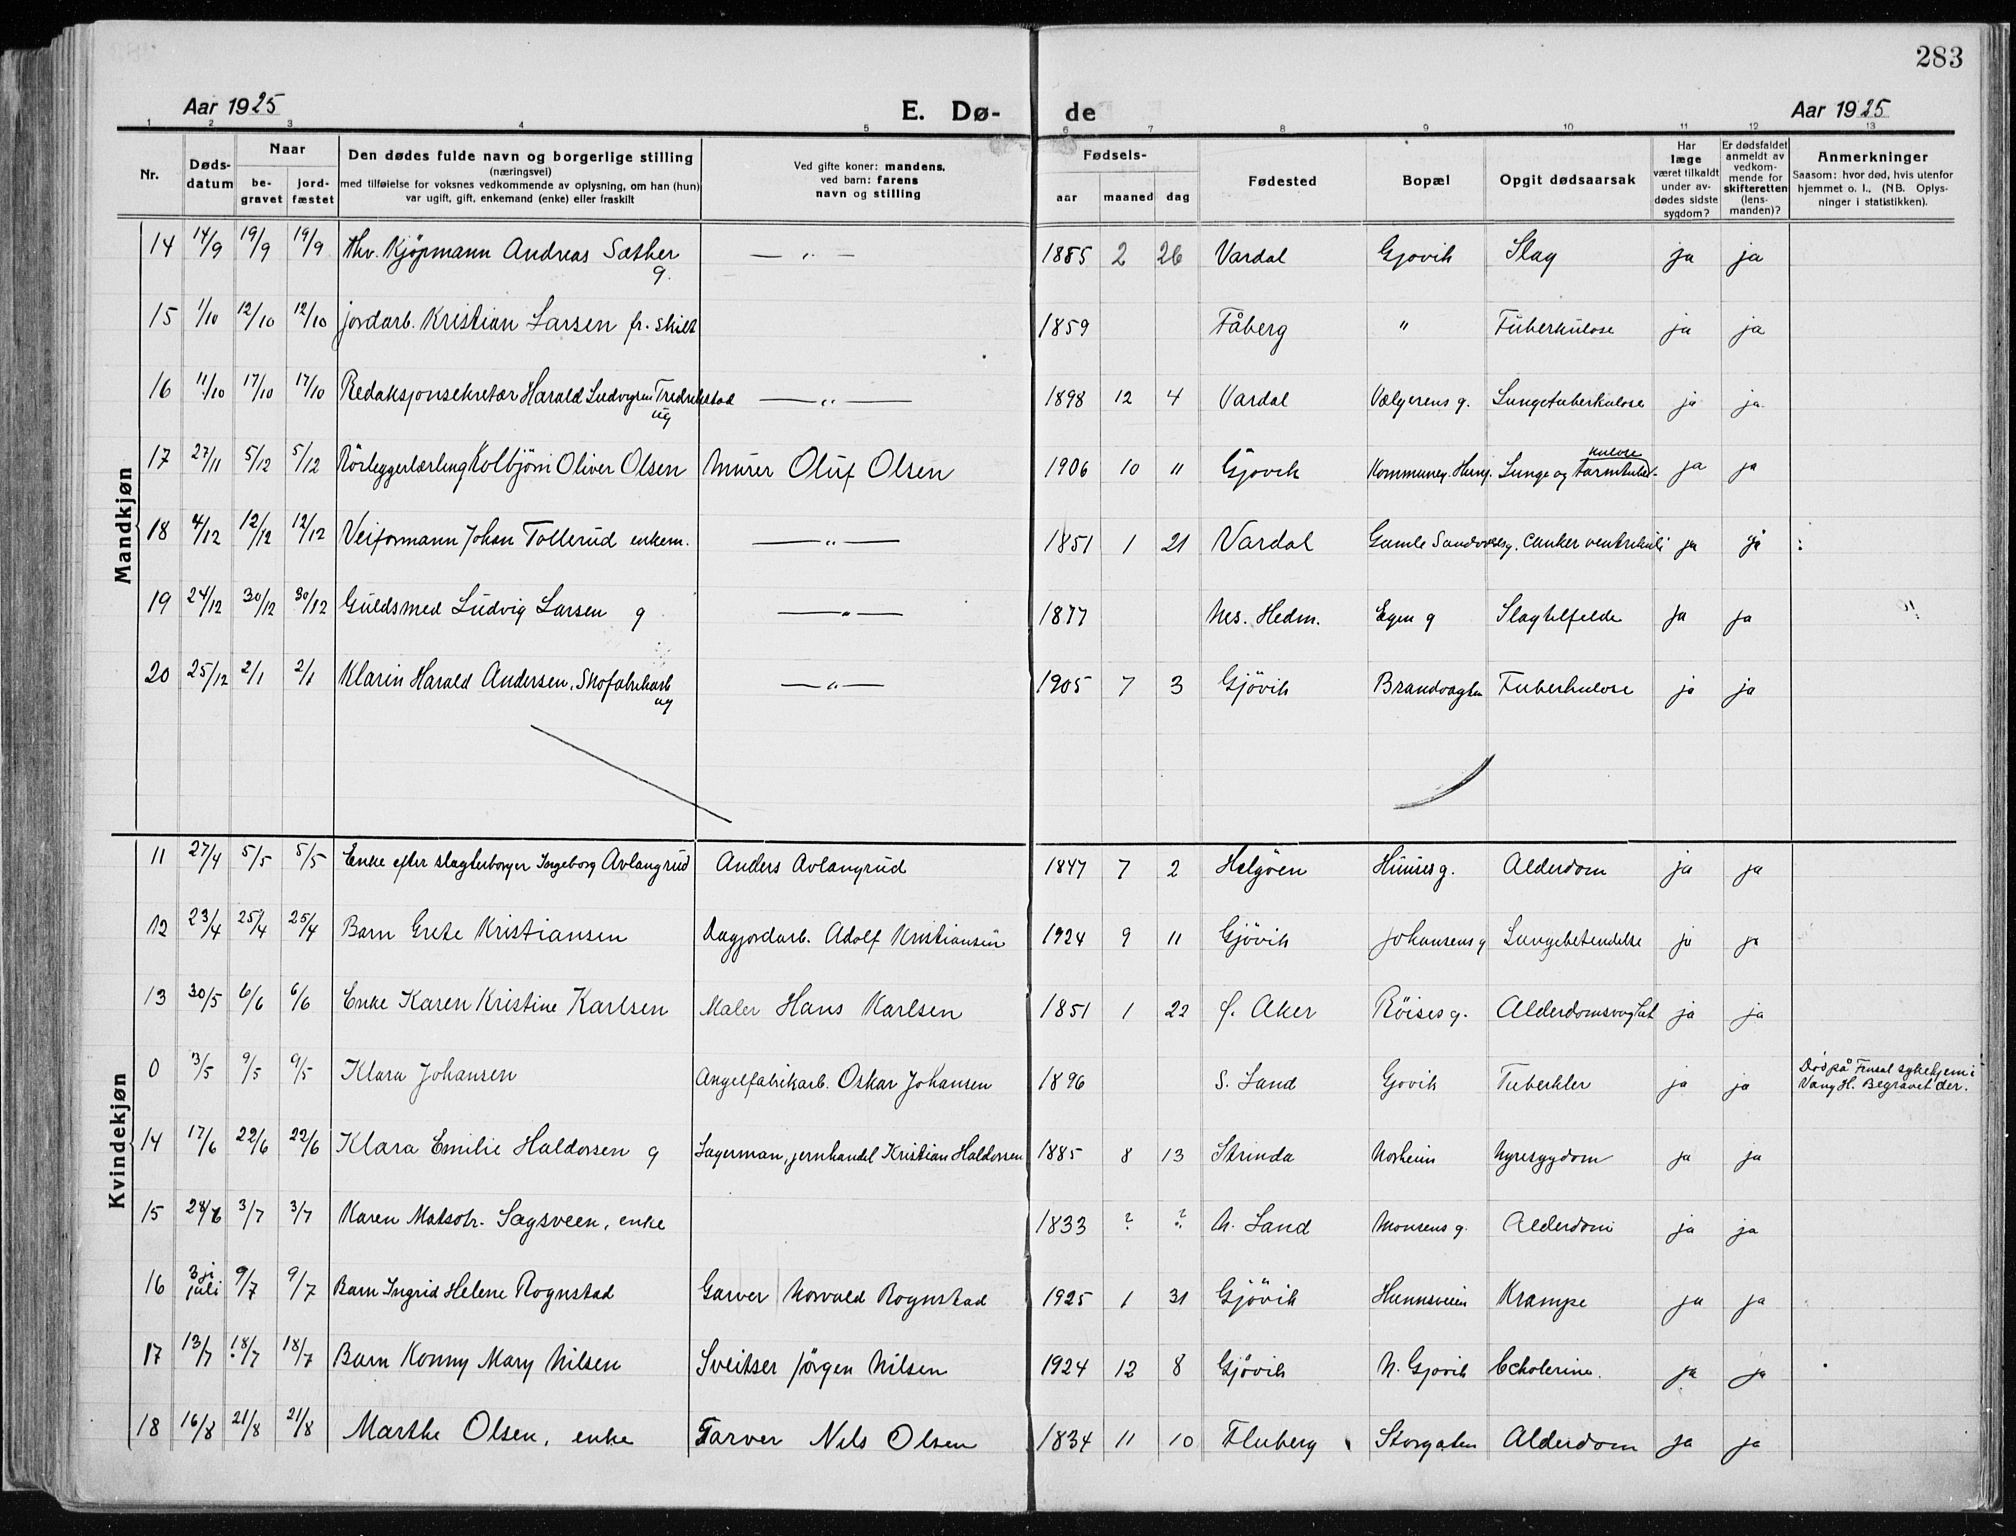 283
Aar 1925 E. Dø- de Aar 1925
1 2 3 4 5 6 7 8 9 10 11 12 13
Nr. Døds-datum Naar be-gravet jord-fæstet Den dødes fulde navn og borgerlige stilling (næringsvei) med tilføielse for voksnes vedkommende av oplysning, om han (hun) var ugift, gift, enkemand (enke) eller fraskilt Ved gifte koner: mandens, ved barn: farens navn og stilling Fødsels- aar maaned dag Fødested Bopæl Opgit dødsaarsak Har læge været tilkaldt under av-dødes sidste sygdom? Er dødsfaldet anmeldt av vedkom-mende for skifteretten (lens-manden)? Anmerkninger Saasom: hvor død, hvis utenfor hjemmet o. l., (NB. Oplys-ninger i statistikken).
Mandkjøn
14 14/9 19/9 19/9 Hhv. Kjøpmann Andreas Sæther g. — „ — 1885 2 26 Vardal Gjøvik Slag ja ja
15 1/10 12/10 12/10 jordarb. Kristian Larsen fr. skilt 1859 Fåberg " Tuberkulose ja ja
16 11/10 17/10 17/10 Redaksjonsekretær Harald Ludvigsen Fredrikstad ug — „ — 1898 12 4 Vardal Vælgerens g. Lungetuberkulose ja ja
17 27/11 5/12 5/12 Rörleggerlærling Kolbjörn Oliver Olsen Murer Oluf Olsen 1906 10 11 Gjøvik Kommuneg. Hung. Lunge og Tarmtuber-kulose ja ja
18 4/12 12/12 12/12 Veiformann Johan Tollerud enkem. — „ — 1851 1 21 Vardal Gamle Sandvoldsg. canker ventrikuli ja ja
19 24/12 30/12 30/12 Guldsmed Ludvig Larsen g — „ — 1877 Nes. Hedm. Egen g Slagtilfelde ja ja
20 25/12 2/1 2/1 Klarin Harald Andersen, Skofabrikarb ug — „ — 1905 7 3 Gjövik Brandvagten Tuberkulose ja ja
Kvindekjøn
11 27/4 5/5 5/5 Enke efter slagterborger Ingeborg Avlangrud Anders Avlangrud 1847 7 2 Helgöen Huusesg. Alderdom ja ja
12 23/4 25/4 25/4 Barn Grete Kristiansen Dagjordarb. Adolf Kristiansen 1924 9 11 Gjövik Johansens g Lungebetendelse ja ja
13 30/5 6/6 6/6 Enke Karen Kristine Karlsen Maler Hans Karlsen 1851 1 22 Ø. Aker Röises g. Alderdomsvaghet ja ja
0 3/5 9/5 9/5 Klara Johansen Angelfabrikarb. Oskar Johansen 1896 S. Land Gjøvik Tuberkler ja ja Dös på Finsal sykehjem i Vang H. Begravet der.
14 17/6 22/6 22/6 Klara Emilie Haldorsen g Lagerman, jernhandel Kristian Haldorsen 1885 8 13 Strinda Norheim Nyresygdom ja ja
15 28/6 3/7 3/7 Karen Matsdtr. Sagsveen, enke 1833 ? ? N. Land Monsens g. Alderdom ja ja
16 3 juli 9/7 9/7 Barn Ingrid Helene Rognstad Garver Norvald Rognstad 1925 1 31 Gjövik Hunnsveien Krampe ja ja
17 13/7 18/7 18/7 Barn Konny Mary Nilsen Sveitser Jörgen Nilsen 1924 12 8 Gjövik N. Gjøvik Cholerine. ja ja
18 16/8 21/8 21/8 Marthe Olsen, enke Farver Nils Olsen 1834 11 10 Fluberg Storgaten Alderdom ja ja